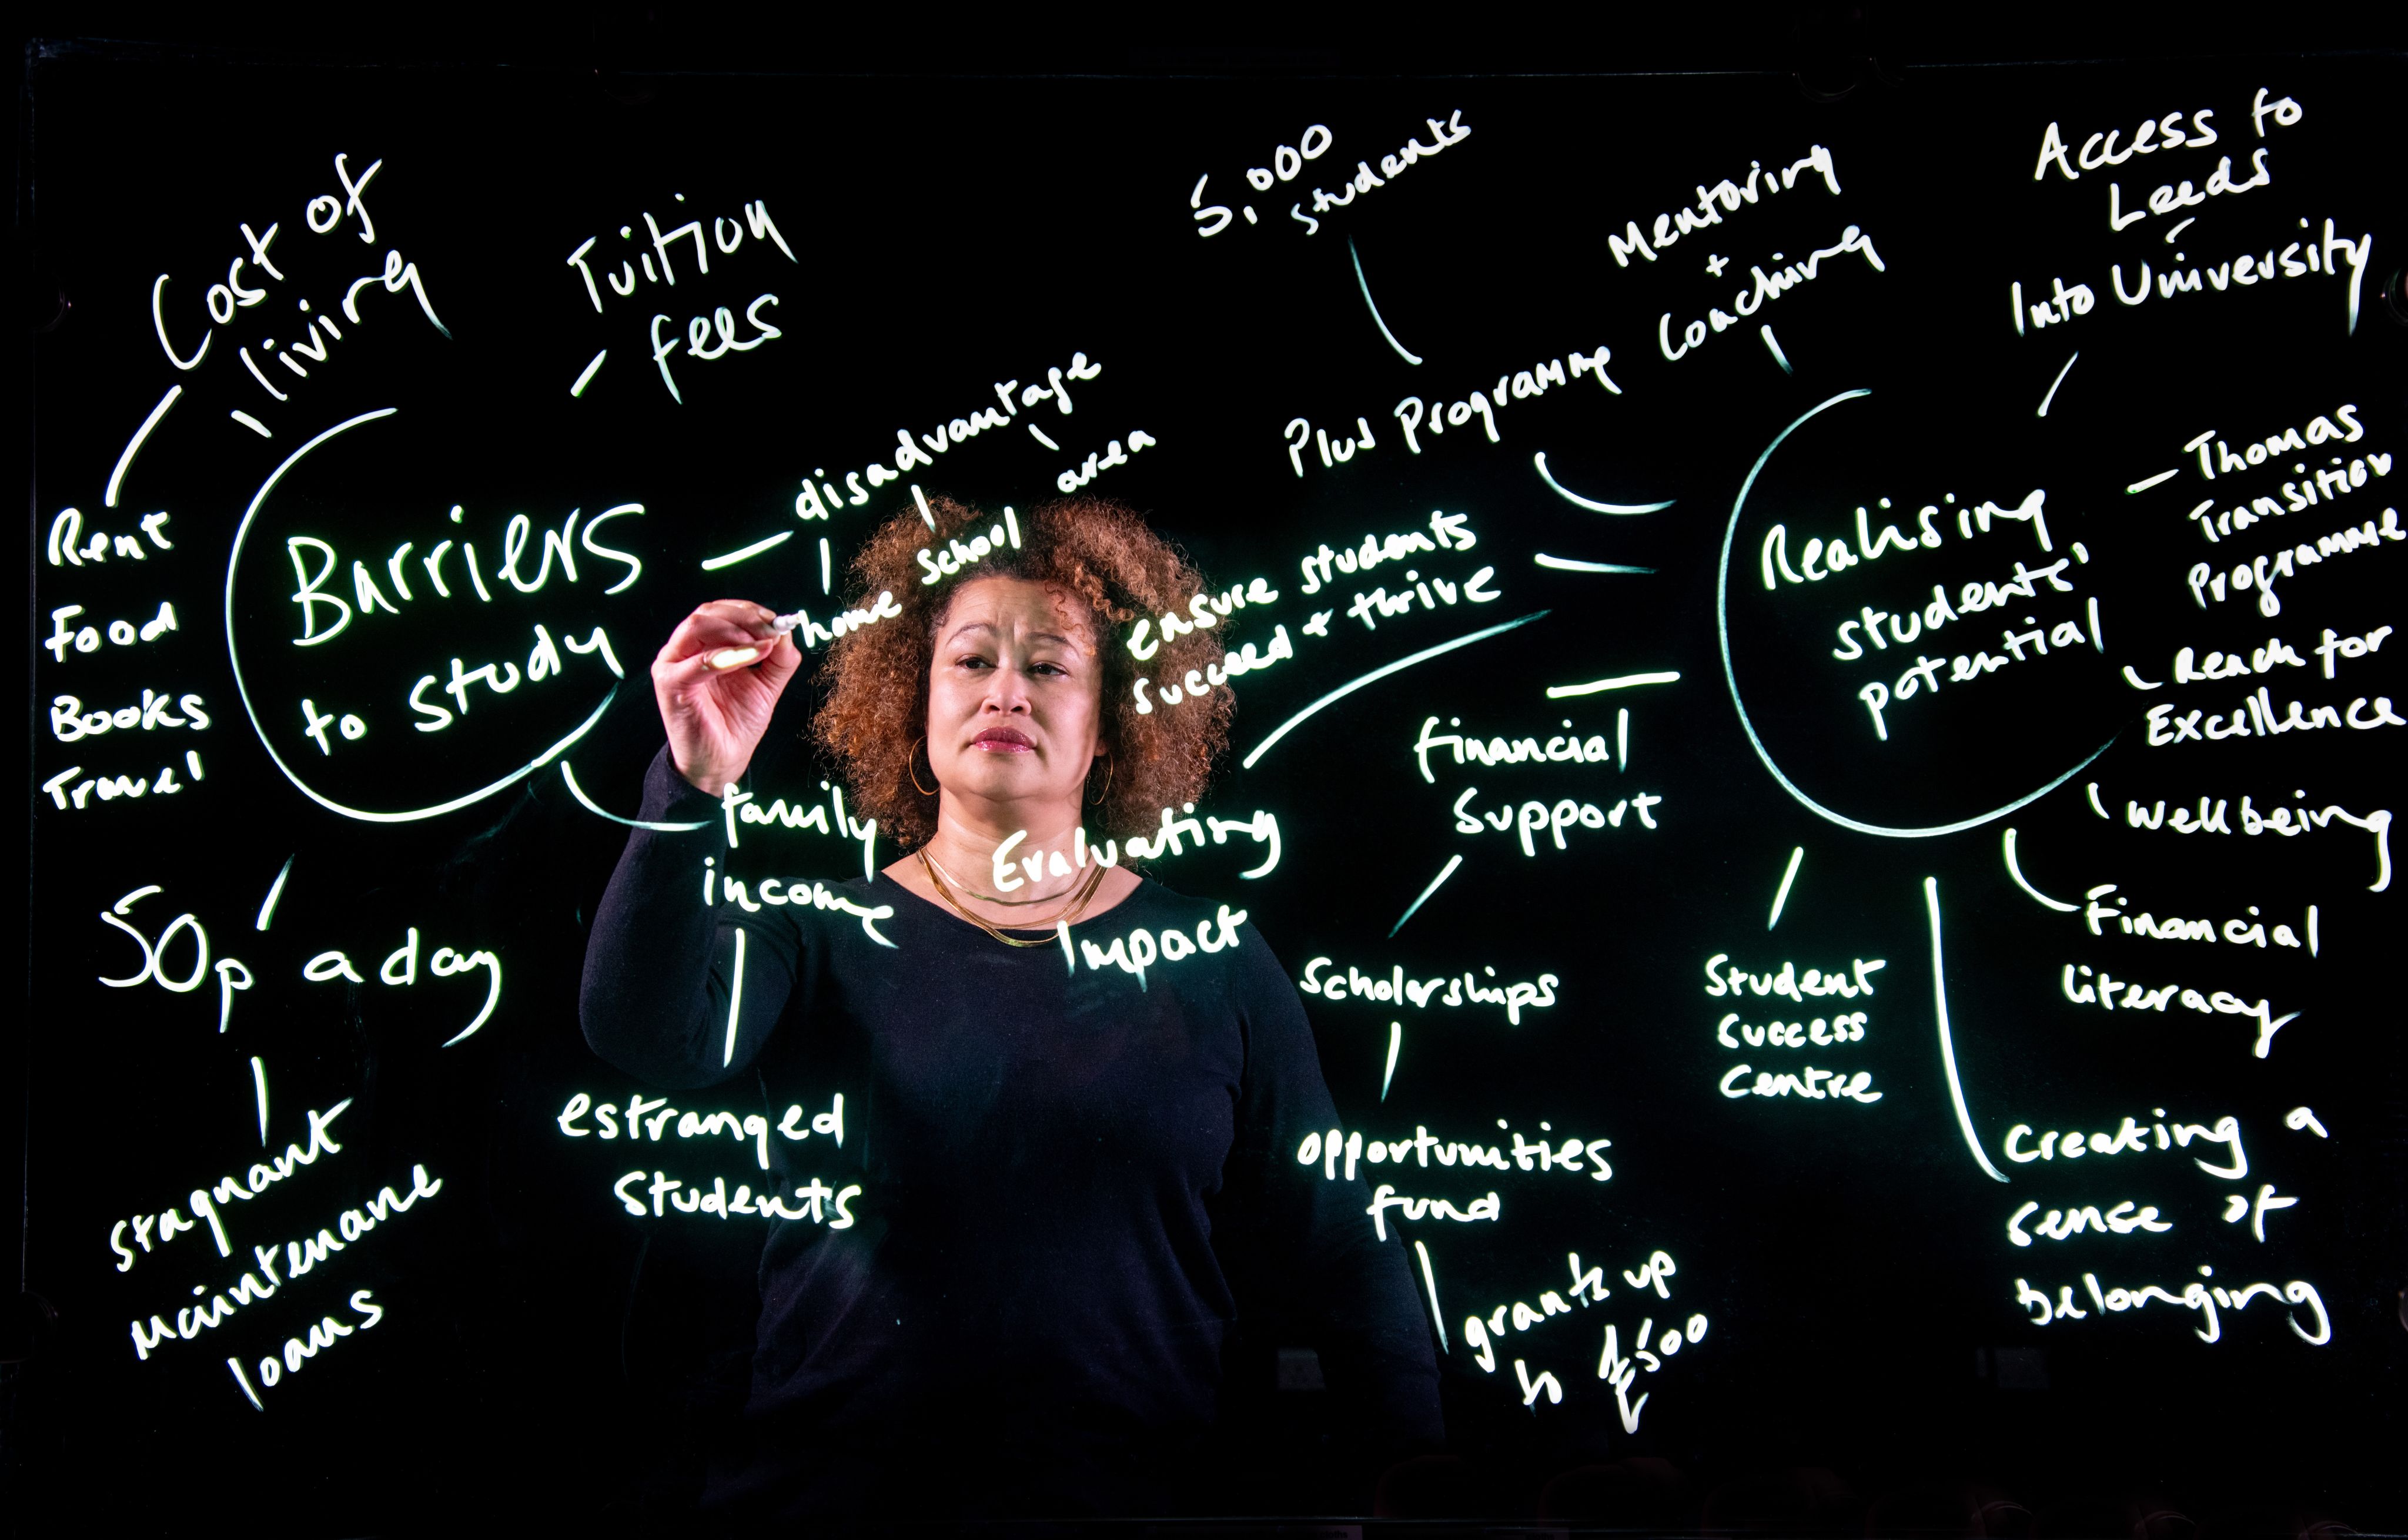 Cost of
living
Tuition
fees
Rent
Food
Books
Travel
Barriers
to study
disadvantage
area
school
home
family
income
estranged
students
50p a day
stagnant
maintenance
loans
5,000
students
Plus Programme
Mentoring
+
Coaching
Access to
Leeds
Into University
Realising
students'
potential
Thomas
Transition
Programme
Reach for
Excellence
Wellbeing
Financial
literacy
Creating a
sense of
belonging
Student
Success
Centre
ensure students
succeed + thrive
Evaluating
Impact
financial
support
Scholarships
opportunities
fund
grants up
to £500